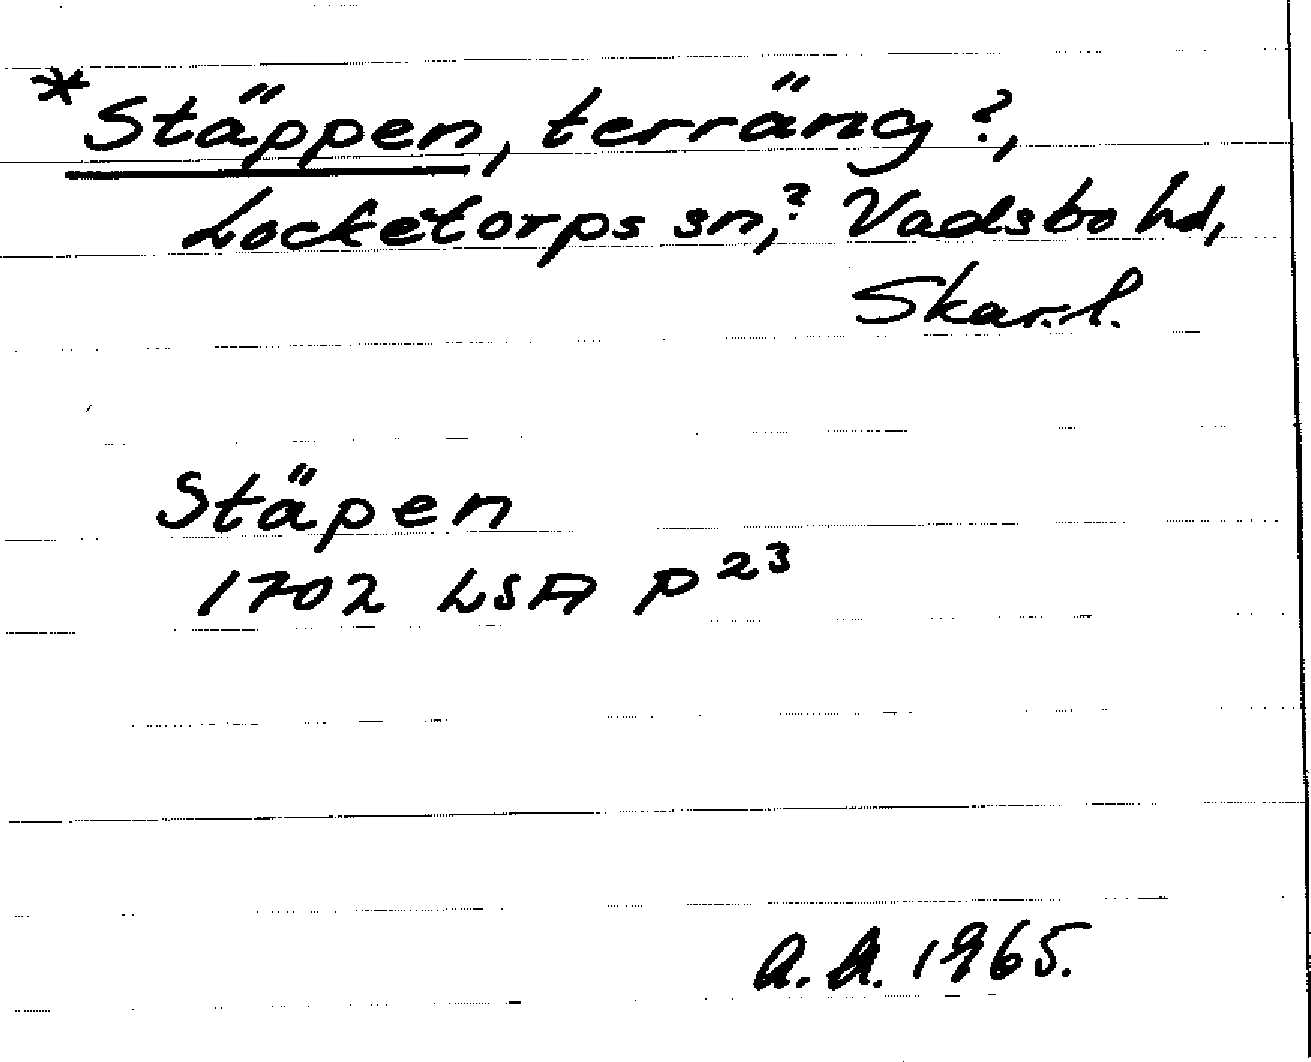 *Stäppen, terräng?,
Locketorps sn,? Vadsbo hd,
Skar.l.
Stäpen
1702 LSA P23
a.a. 1965.